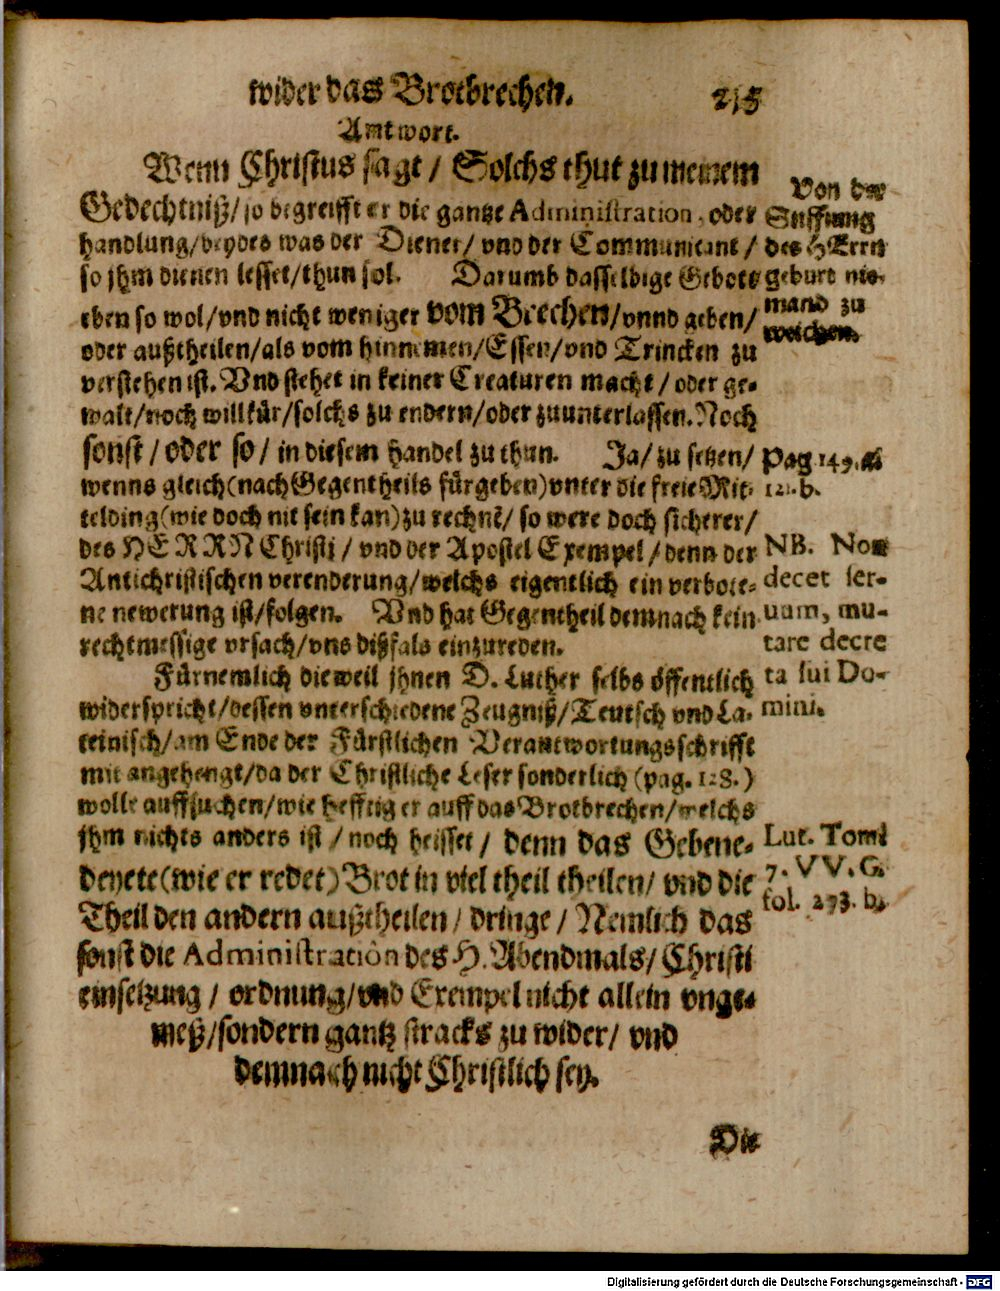 wider das Brotbrechen. 215
Antwort.
Wenn Christus sagt / Solchs thut zu meinem
Gedechtniß/ so begreifft er die gantze Administration, oder
handlung/beydes was der Diener/ vnd der Communicant /
so jhm dienen lesset/thun sol. Darumb dasselbige Gebote
eben so wol/vnd nicht weniger vom Brechen/vnnd geben/
oder außtheilen/als vom hinnemen/Essen/vnd Trincken zu
verstehen ist. Vnd stehet in keiner Creaturen macht / oder ge-
walt/noch willkür/solchs zu endern/oder zuunterlassen. Noch
sonst / oder so / in diesem handel zu thun. Ja/ zu setzen/
wenns gleich (nach Gegentheils fürgeben) vnter die freie Mit-
telding (wie doch nit sein kan) zu rechnẽ/ so were doch sicherer/
des HERRN Christi / vnd der Apostel Exempel / denn der
Antichristischen verenderung/welchs eigentlich ein verbote-
ne newerung ist/folgen. Vnd hat Gegentheil demnach kein
rechtmessige vrsach/vns dißfals einzureden.
Fürnemlich dieweil jhnen D. Luther selbs öffentlich
widerspricht/dessen vnterschiedene Zeugniß/Teutsch vnd La-
teinisch/am Ende der Fürstlichen Verantwortungsschrifft
mit angehengt/da der Christliche Leser sonderlich (pag. 128.)
wolle auffsuchen/wie hefftig er auff das Brotbrechen/welchs
jhm nichts anders ist / noch heisset / denn das Gebene-
deyete (wie er redet) Brot in viel theil theilen/ vnd die
Theil den andern außtheilen / dringe / Nemlich das
sonst die Administration des H. Abendmals/ Christi
einsetzung / ordnung/vnd Exempel nicht allein vnge-
meß/sondern gantz stracks zu wider/ vnd
demnach nicht Christlich sey.
Die
Von der
Stifftung
des HErrn
geburt nie-
mand zu
weichen.
Pag 149.
121. b.
NB. Non
decet ser-
uum, mu-
tare decre
ta sui Do-
mini.
Lut. Tomi
7. VV. G.
fol. 273. b.
Digitalisierung gefördert durch die Deutsche Forschungsgemeinschaft - DFG